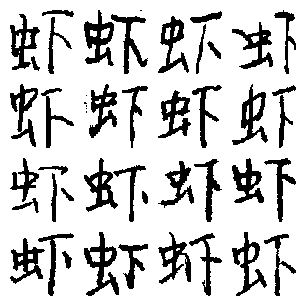 虾虾虾虾
虾虾虾虾
虾虾虾虾
虾虾虾虾